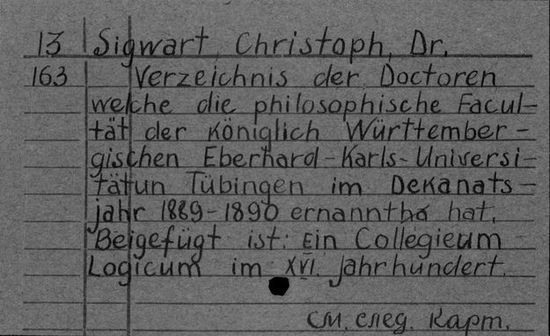 13 Sigwart, Christoph, Dr.
163 Verzeichnis der Doctoren
welche die philosophische Facul-
tät der Königlich Württember-
gischen Eberhard-Karls-Universi-
tätun Tübingen im Dekanats-
jahr 1889-1890 ernanntha hat.
Beigefügt ist: Ein Collegieum
Logicum im XVI. Jahrhundert.
см. след. карт.